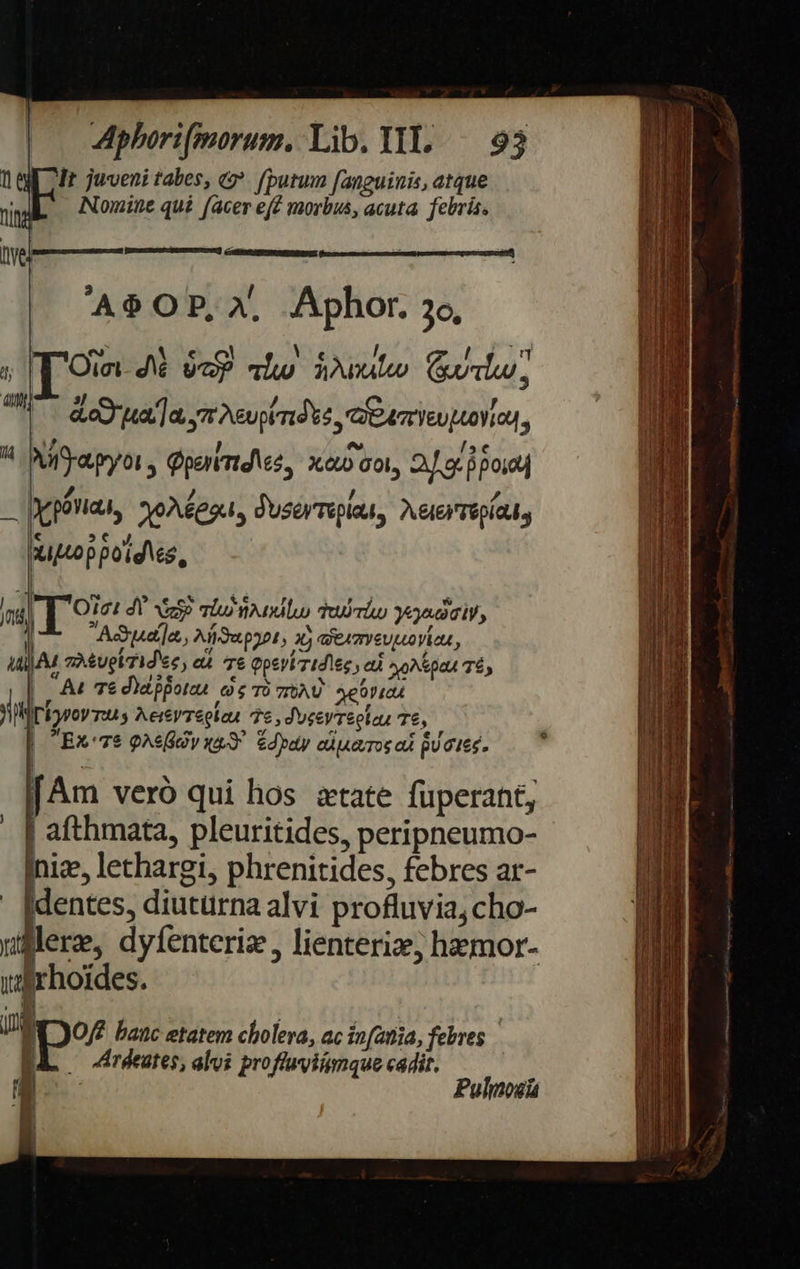 Aphorismorum. Lib. III. 93
It juveni tabes, & sputum sanguinis, atque
Nomine qui sacer est morbus, acuta febris.
ἈΦΟΡ. λ'. Aphor. 30,
Τοῖσι δὲ ὑπὲρ τὴν ἡλικίην ταύτην,
ἄσθματα, πλευρίτιδες, περιπνευμονίαι,
λήθαργοι, φρενίτιδες, καῦσοι, διάρροιαι
χρόνιαι, χολέραι, δυσεντερίαι, λειεντερίαι,
αἱμορροΐδες,
Τοῖσι δ' ὑπὲρ τὴν ἡλικίην ταύτην γεγαῶσιν,
Ἄσθματα, λήθαργοι, καὶ περιπνευμονίαι,
Αἱ πλευρίτιδες, αἵ τε φρενίτιδες, αἱ χολέραι τέ,
Αἵ τε διάρροιαι ὡς τὸ πολὺ χρόνιαι
Γίγνονται, λειεντερίαι τε, δυσεντερίαι τε,
Ἔκ τε φλεβῶν καθ' ἕδρην αἵματος αἱ ῥύσιες.
Am verò qui hos ætate superant,
asthmata, pleuritides, peripneumo-
niæ, lethargi, phrenitides, febres ar-
dentes, diuturna alvi profluvia, cho-
leræ, dysenteriæ, lienteriæ, hæmor-
rhoïdes.
Post hanc etatem cholera, ac insania, febres
Ardentes, alvi profluviúmque cadit.
Pulmonis